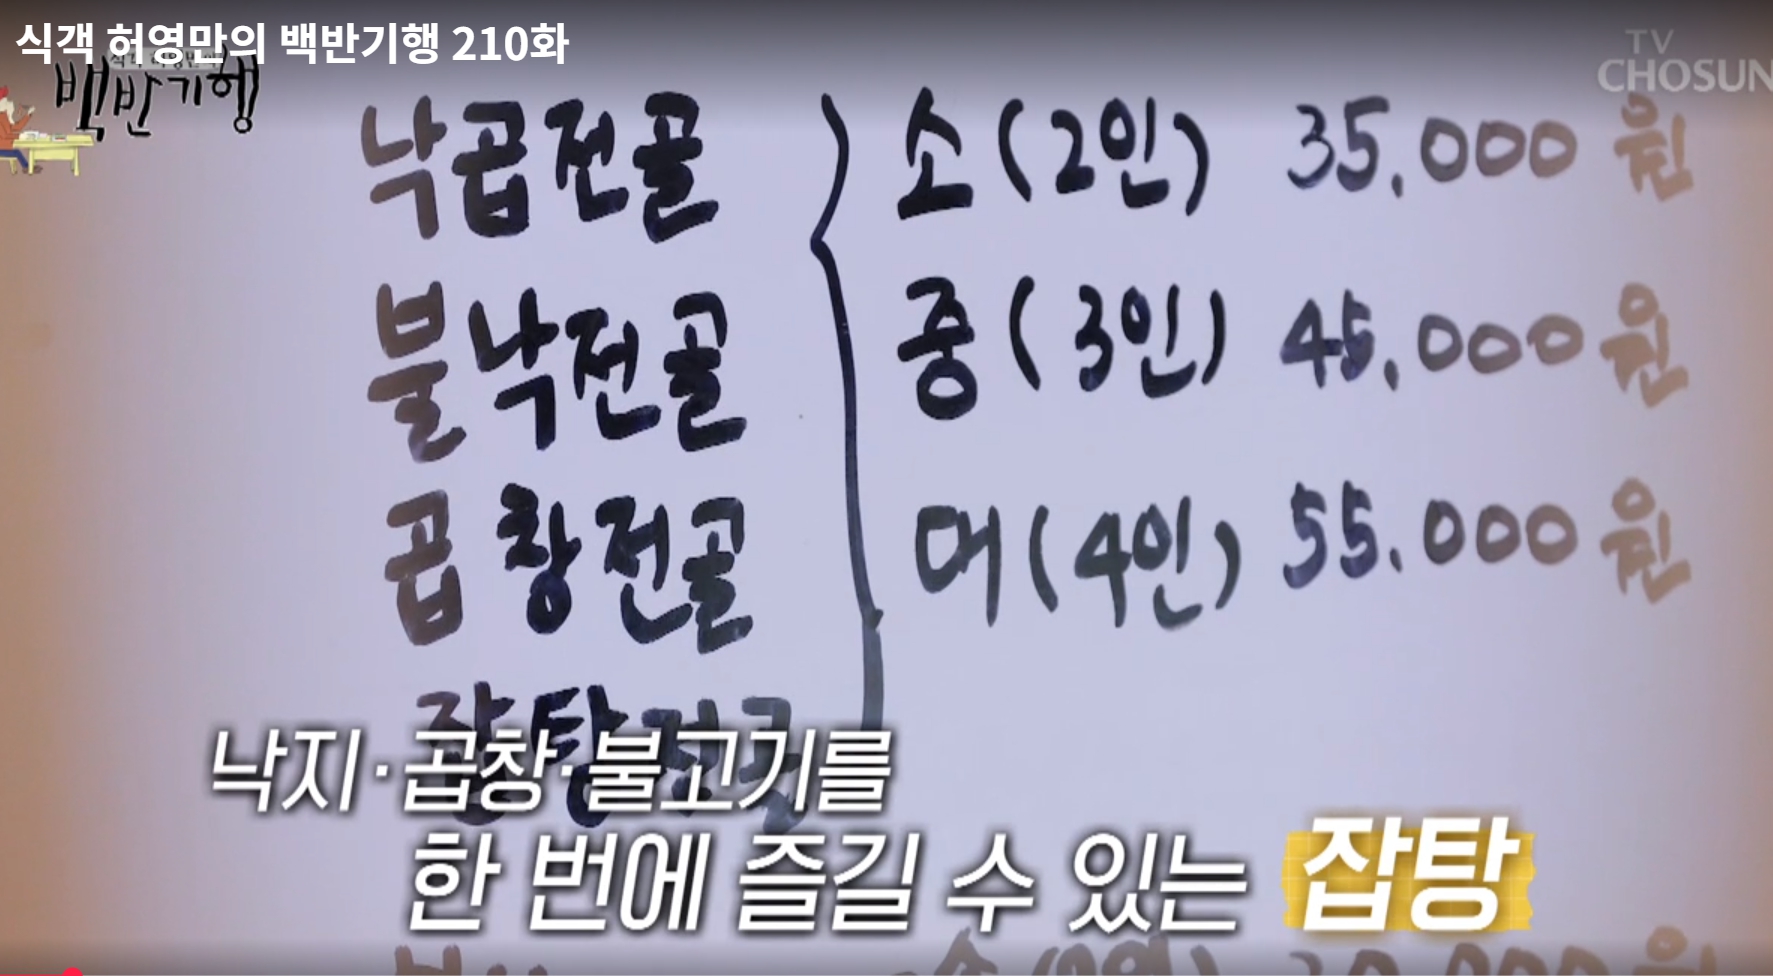 식객 허영만의 백반기행 210화
백반기행
TV
CHOSUN
낙곱전골 소(2인) 35,000원
불낙전골 중(3인) 45,000원
곱창전골 대(4인) 55,000원
잡탕전골
낙지·곱창·불고기를
한 번에 즐길 수 있는 잡탕